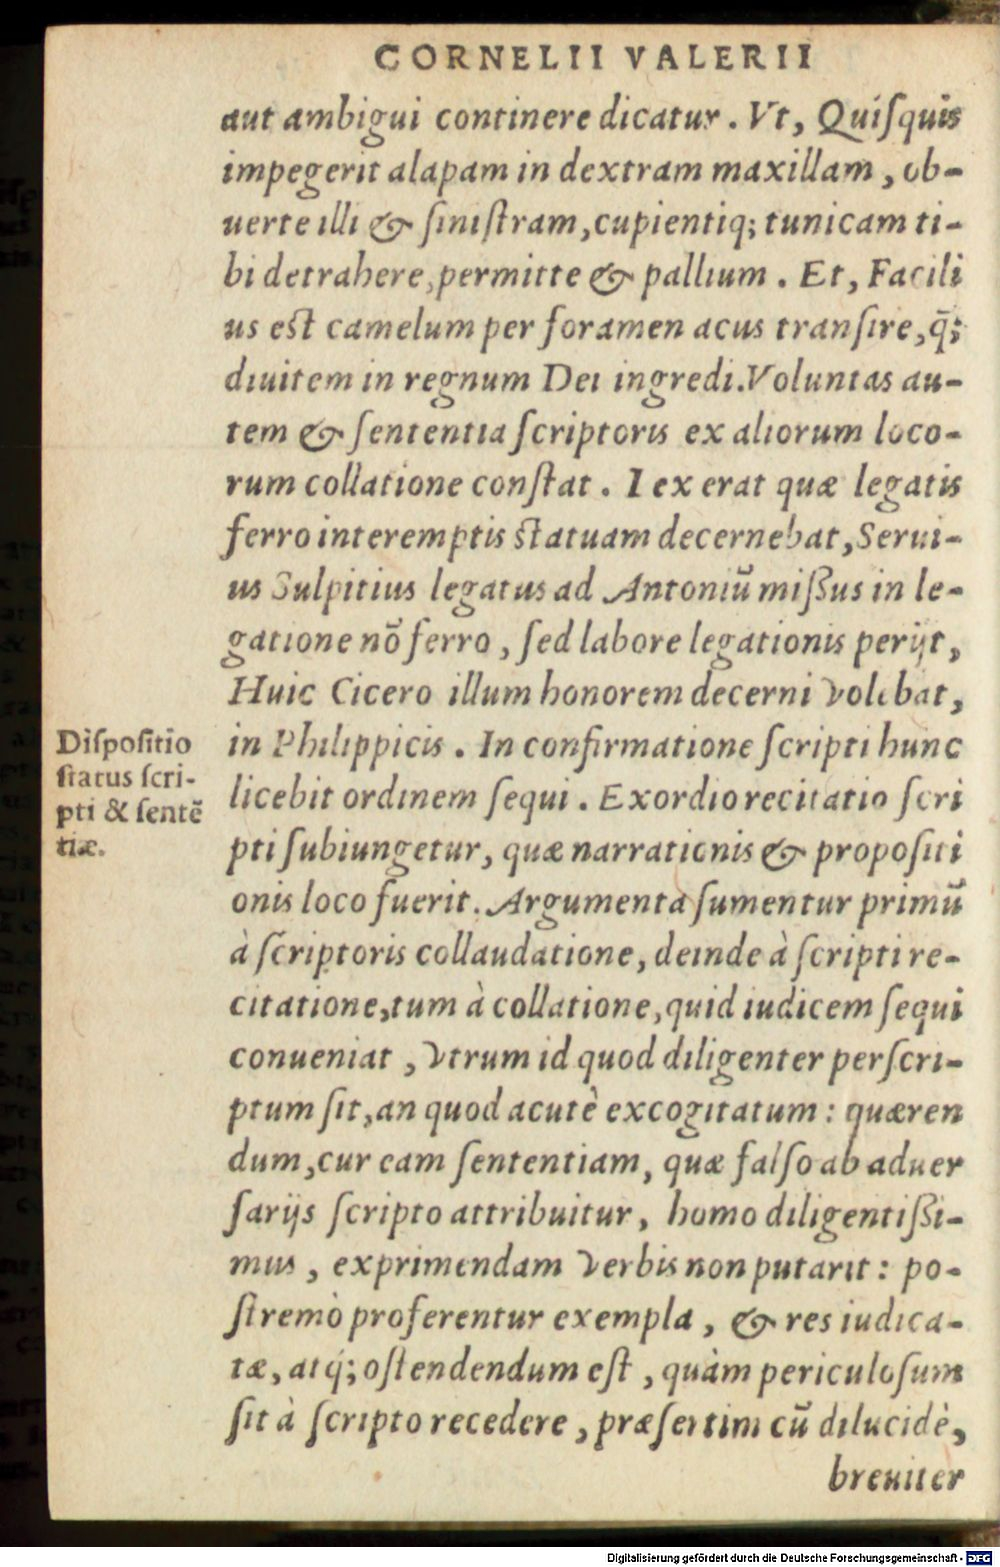 CORNELII VALERII
aut ambigui continere dicatur. Vt, Quiſquis
impegerit alapam in dextram maxillam, ob-
uerte illi & ſiniſtram, cupientiq; tunicam ti-
bi detrahere, permitte & pallium. Et, Facili
us est camelum per foramen acus tranſire, q̄;
diuitem in regnum Dei ingredi. Voluntas au-
tem & ſententia ſcriptoris ex aliorum loco-
rum collatione conſtat. Lex erat quæ legatis
ferro interemptis statuam decernebat, Serui-
us Sulpitius legatus ad Antoniū miſſus in le-
gatione nō ferro, ſed labore legationis perijt,
Huic Cicero illum honorem decerni volebat,
in Philippicis. In confirmatione ſcripti hunc
licebit ordinem ſequi. Exordio recitatio ſcri
pti ſubiungetur, quæ narrationis & propoſiti
onis loco fuerit. Argumenta ſumentur primū
à ſcriptoris collaudatione, deinde à ſcripti re-
citatione, tum à collatione, quid iudicem ſequi
conueniat, vtrum id quod diligenter perſcri-
ptum ſit, an quod acutè excogitatum: quæren
dum, cur eam ſententiam, quæ falſo ab aduer
ſarijs ſcripto attribuitur, homo diligentiſſi-
mus, exprimendam verbis non putarit: po-
ſtremò proferentur exempla, & res iudica-
tæ, atq́; oſtendendum eſt, quàm periculoſum
ſit à ſcripto recedere, præſertim cū dilucidè,
breuiter
Diſpoſitio
ſtatus ſcri-
pti & ſentē
tiæ.
Digitalisierung gefördert durch die Deutsche Forschungsgemeinschaft - DFG